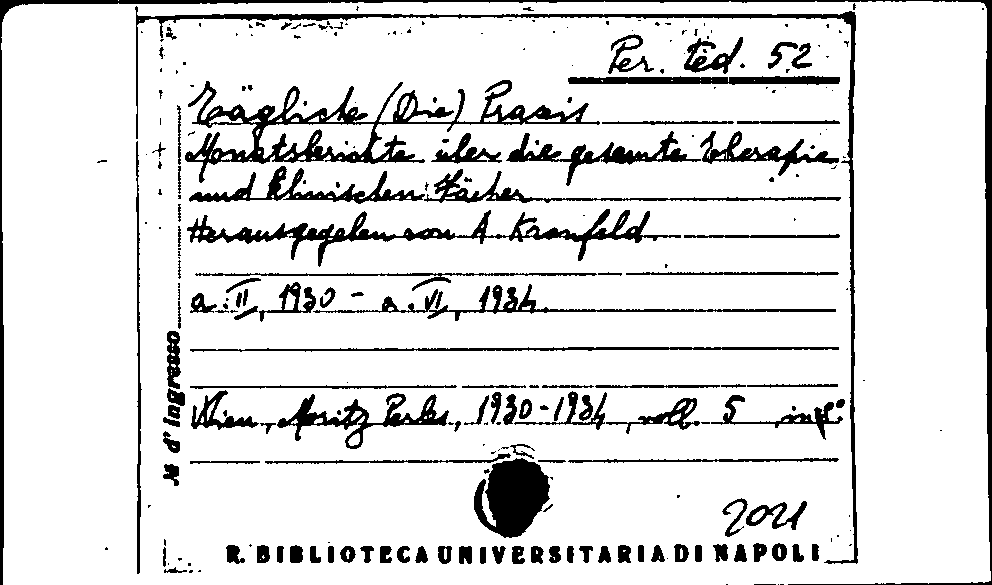 Per. ted. 52
Tägliche (Die) Praxis
Monatsberichte über die gesamte Therapie
und klinischen Fächer
Herausgegeben von A. Kronfeld.
a. II, 1930 - a. VI, 1934.
Wien, Moritz Perles, 1930-1934, voll. 5 in 8°
N d'ingresso
2021
R. BIBLIOTECA UNIVERSITARIA DI NAPOLI